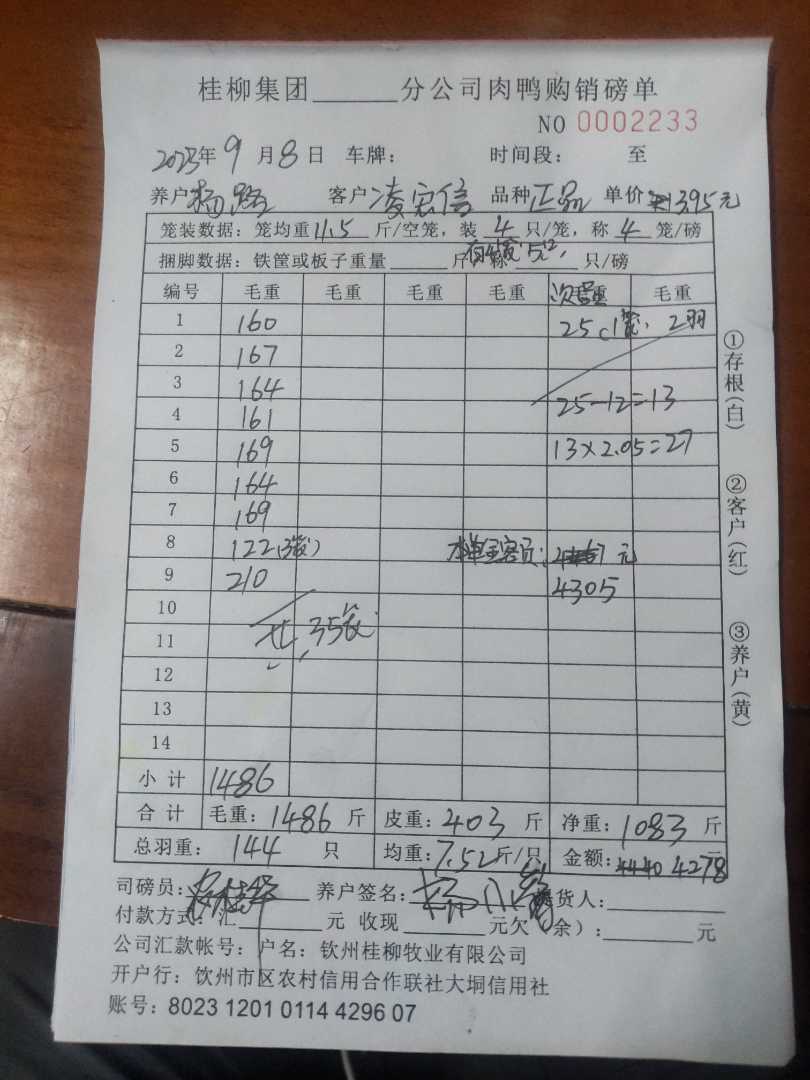 桂柳集团______分公司肉鸭购销磅单
NO 0002233
2023年 9 月 8 日 车牌: 时间段: 至
养户 杨 客户 凌宏信 品种 正品 单价 3.95元
笼装数据: 笼均重 11.5 斤/空笼, 装 4 只/笼, 称 4 笼/磅
捆脚数据: 铁筐或板子重量______斤 ______只/磅
编号 毛重 毛重 毛重 毛重 次品 毛重
1 160 25 (1笼, 2羽
2 167
3 164 25-12=13
4 161
5 169 13×2.05=27
6 164
7 169
8 122(3笼) 元
9 210 4305
10
11 共35笼
12
13
14
小计 1486
合计 毛重: 1486 斤 皮重: 403 斤 净重: 1083 斤
总羽重: 144 只 均重: 7.52斤/只 金额: 4278
司磅员: 养户签名: 货人:
付款方式: 汇______元 收现______元欠 余): ______元
公司汇款帐号: 户名: 钦州桂柳牧业有限公司
开户行: 钦州市区农村信用合作联社大垌信用社
账号: 8023 1201 0114 4296 07
①存根(白)
②客户(红)
③养户(黄)